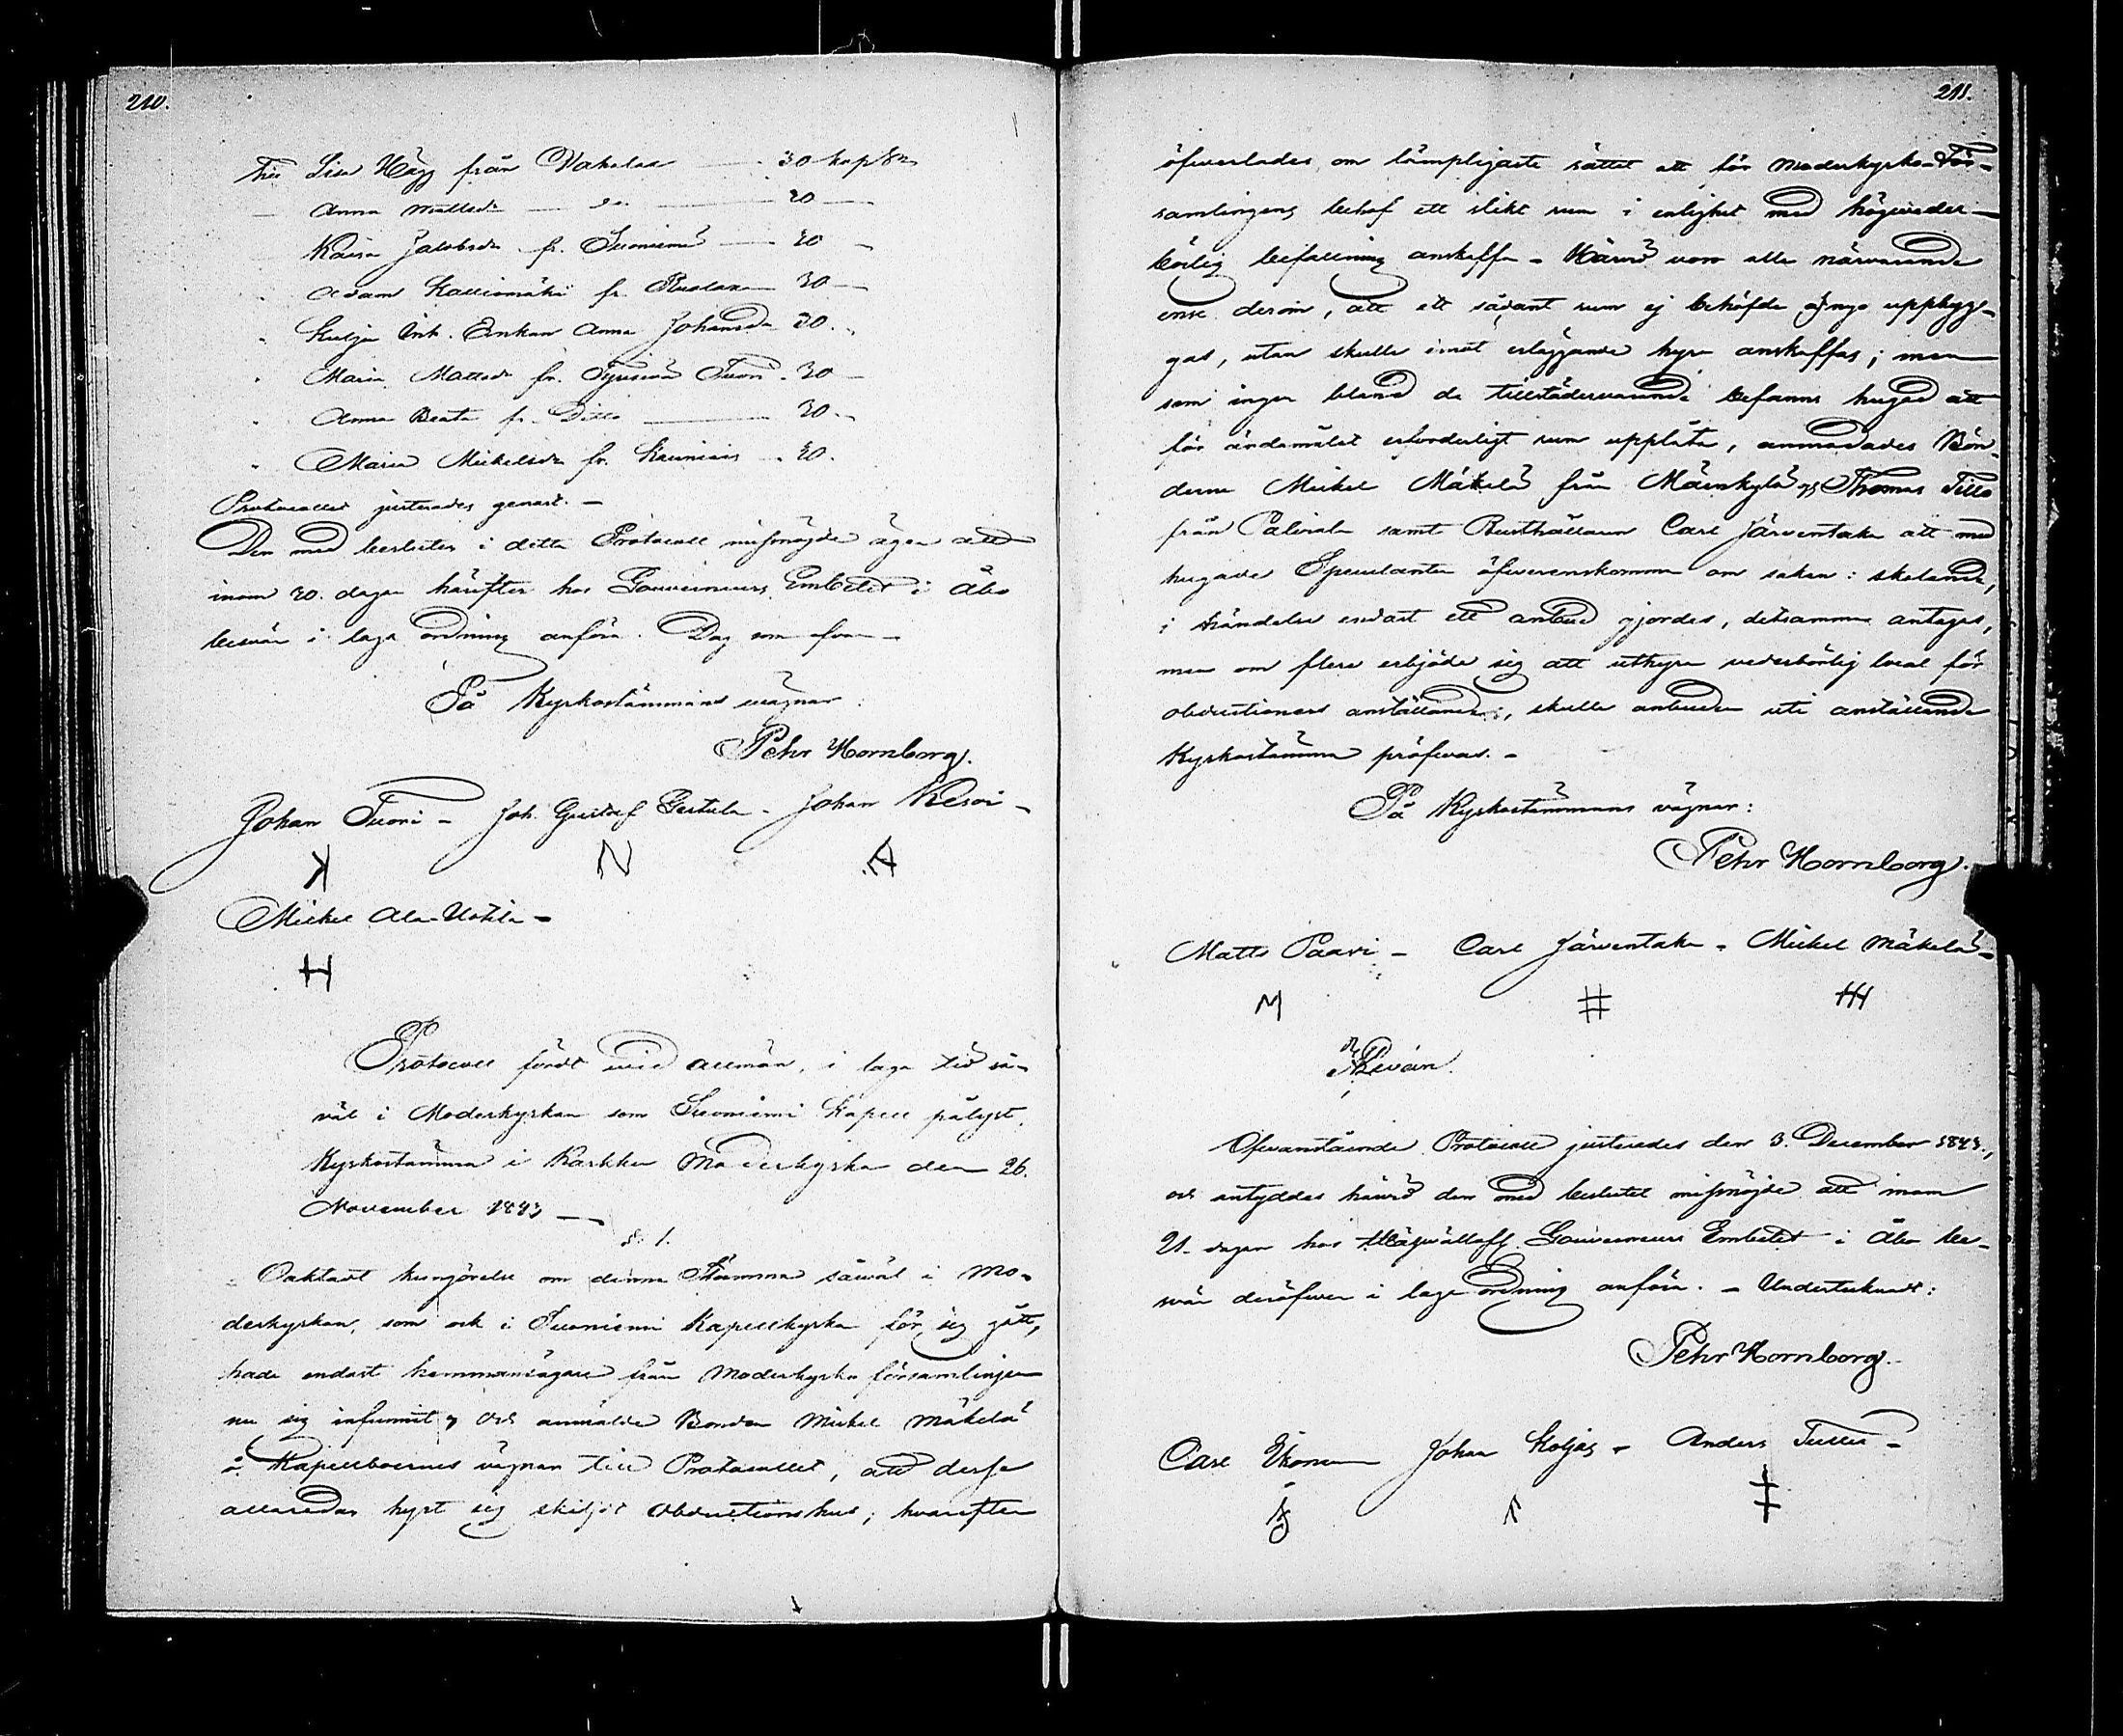 210.
Till Lisa Hägg från Vakalas 30 kop Sr
Anna Mattsdr do. 20
Kaisa Jakobsdr fr. Suoniemi 20
Adam Kalliomäki fr. 30
Inh. Enkan Anna Johansdr 20.
Maria Mattsdr fr. Tuori 30
Anna Beata fr. Ditto 20.
Maria Michelsdr fr. 20.
Protocollet justerades genast. –
Den med besluten i detta Protocoll missnöjde ägen att
inom 20. dagar härefter hos Gouverneurs Embetet i Åbo
besvär i laga ordning anföra. Dag som ofvan –
På Kyrkostämmans vägnar:
Pehr Hornborg.
Johan Tuori – Joh. Gustaf – Johan –
N A
Mickel Ala-Uotila –
H
Protocoll fördt vid allmän, i laga tid så-
väl i Moderkyrkan som Suoniemi Kapell pålyst,
Kyrkostämma i Karkku Moderkyrka den 26.
November 1843 –
§. 1.
Oaktadt kungörelse om denna Stämma såwäl i Mo-
derkyrkan, som ock i Suoniemi Kapellkyrka för sig gått,
hade endast hemmansägare från Moderkyrko församlingen
nu sig infunnit, och anmälde Bonden Mickel Mäkelä
å Kapellboernes vägnar till Protocollet, att desse
allaredan hyrt sig skiljdt Obductionshus; hvarefter
211.
öfverlades om lämpligaste sättet att för Moderkyrko-För-
samlingens behof ett slikt rum i enlighet med högveder-
börlig befallning anskaffa. – Härvid voro alla närvarande
ense derom, att ett sådant rum ej behöfde å nyo uppbyg-
gas, utan skulle imot erläggande hyra anskaffas; men
som ingen bland de tillstädesvarande befanns hugad att
för ändamålet erforderligt rum upplåta, anmodades Bön-
derne Mickel Mäkelä från Märikylä och Thomas Tillo
från Palviala samt Rusthållaren Carl Järventaka att med
hugade Speculanter öfverenskomma om saken: skolande,
i händelse endast ett anbud gjordes, detsamma antagas,
men om flere erbjöde sig att uthyra vederbörlig local för
obductioners anställande, skulle anbuden uti anställande
Kyrkostämma pröfvas. –
På Kyrkostämmans vägnar:
Pehr Hornborg.
Matts Paavi – Carl Järventaka – Mickel Mäkelä –
M # HH
Ofvanstående Protocoll justerades den 3. December 1843.,
och antyddes härvid den med beslutet missnöjde att inom
21. dagar hos Gouverneurs Embetet i Åbo be-
svär deröfver i laga ordning anföra. – Undertecknadt:
Pehr Hornborg.
Carl Johan Koljas – Anders